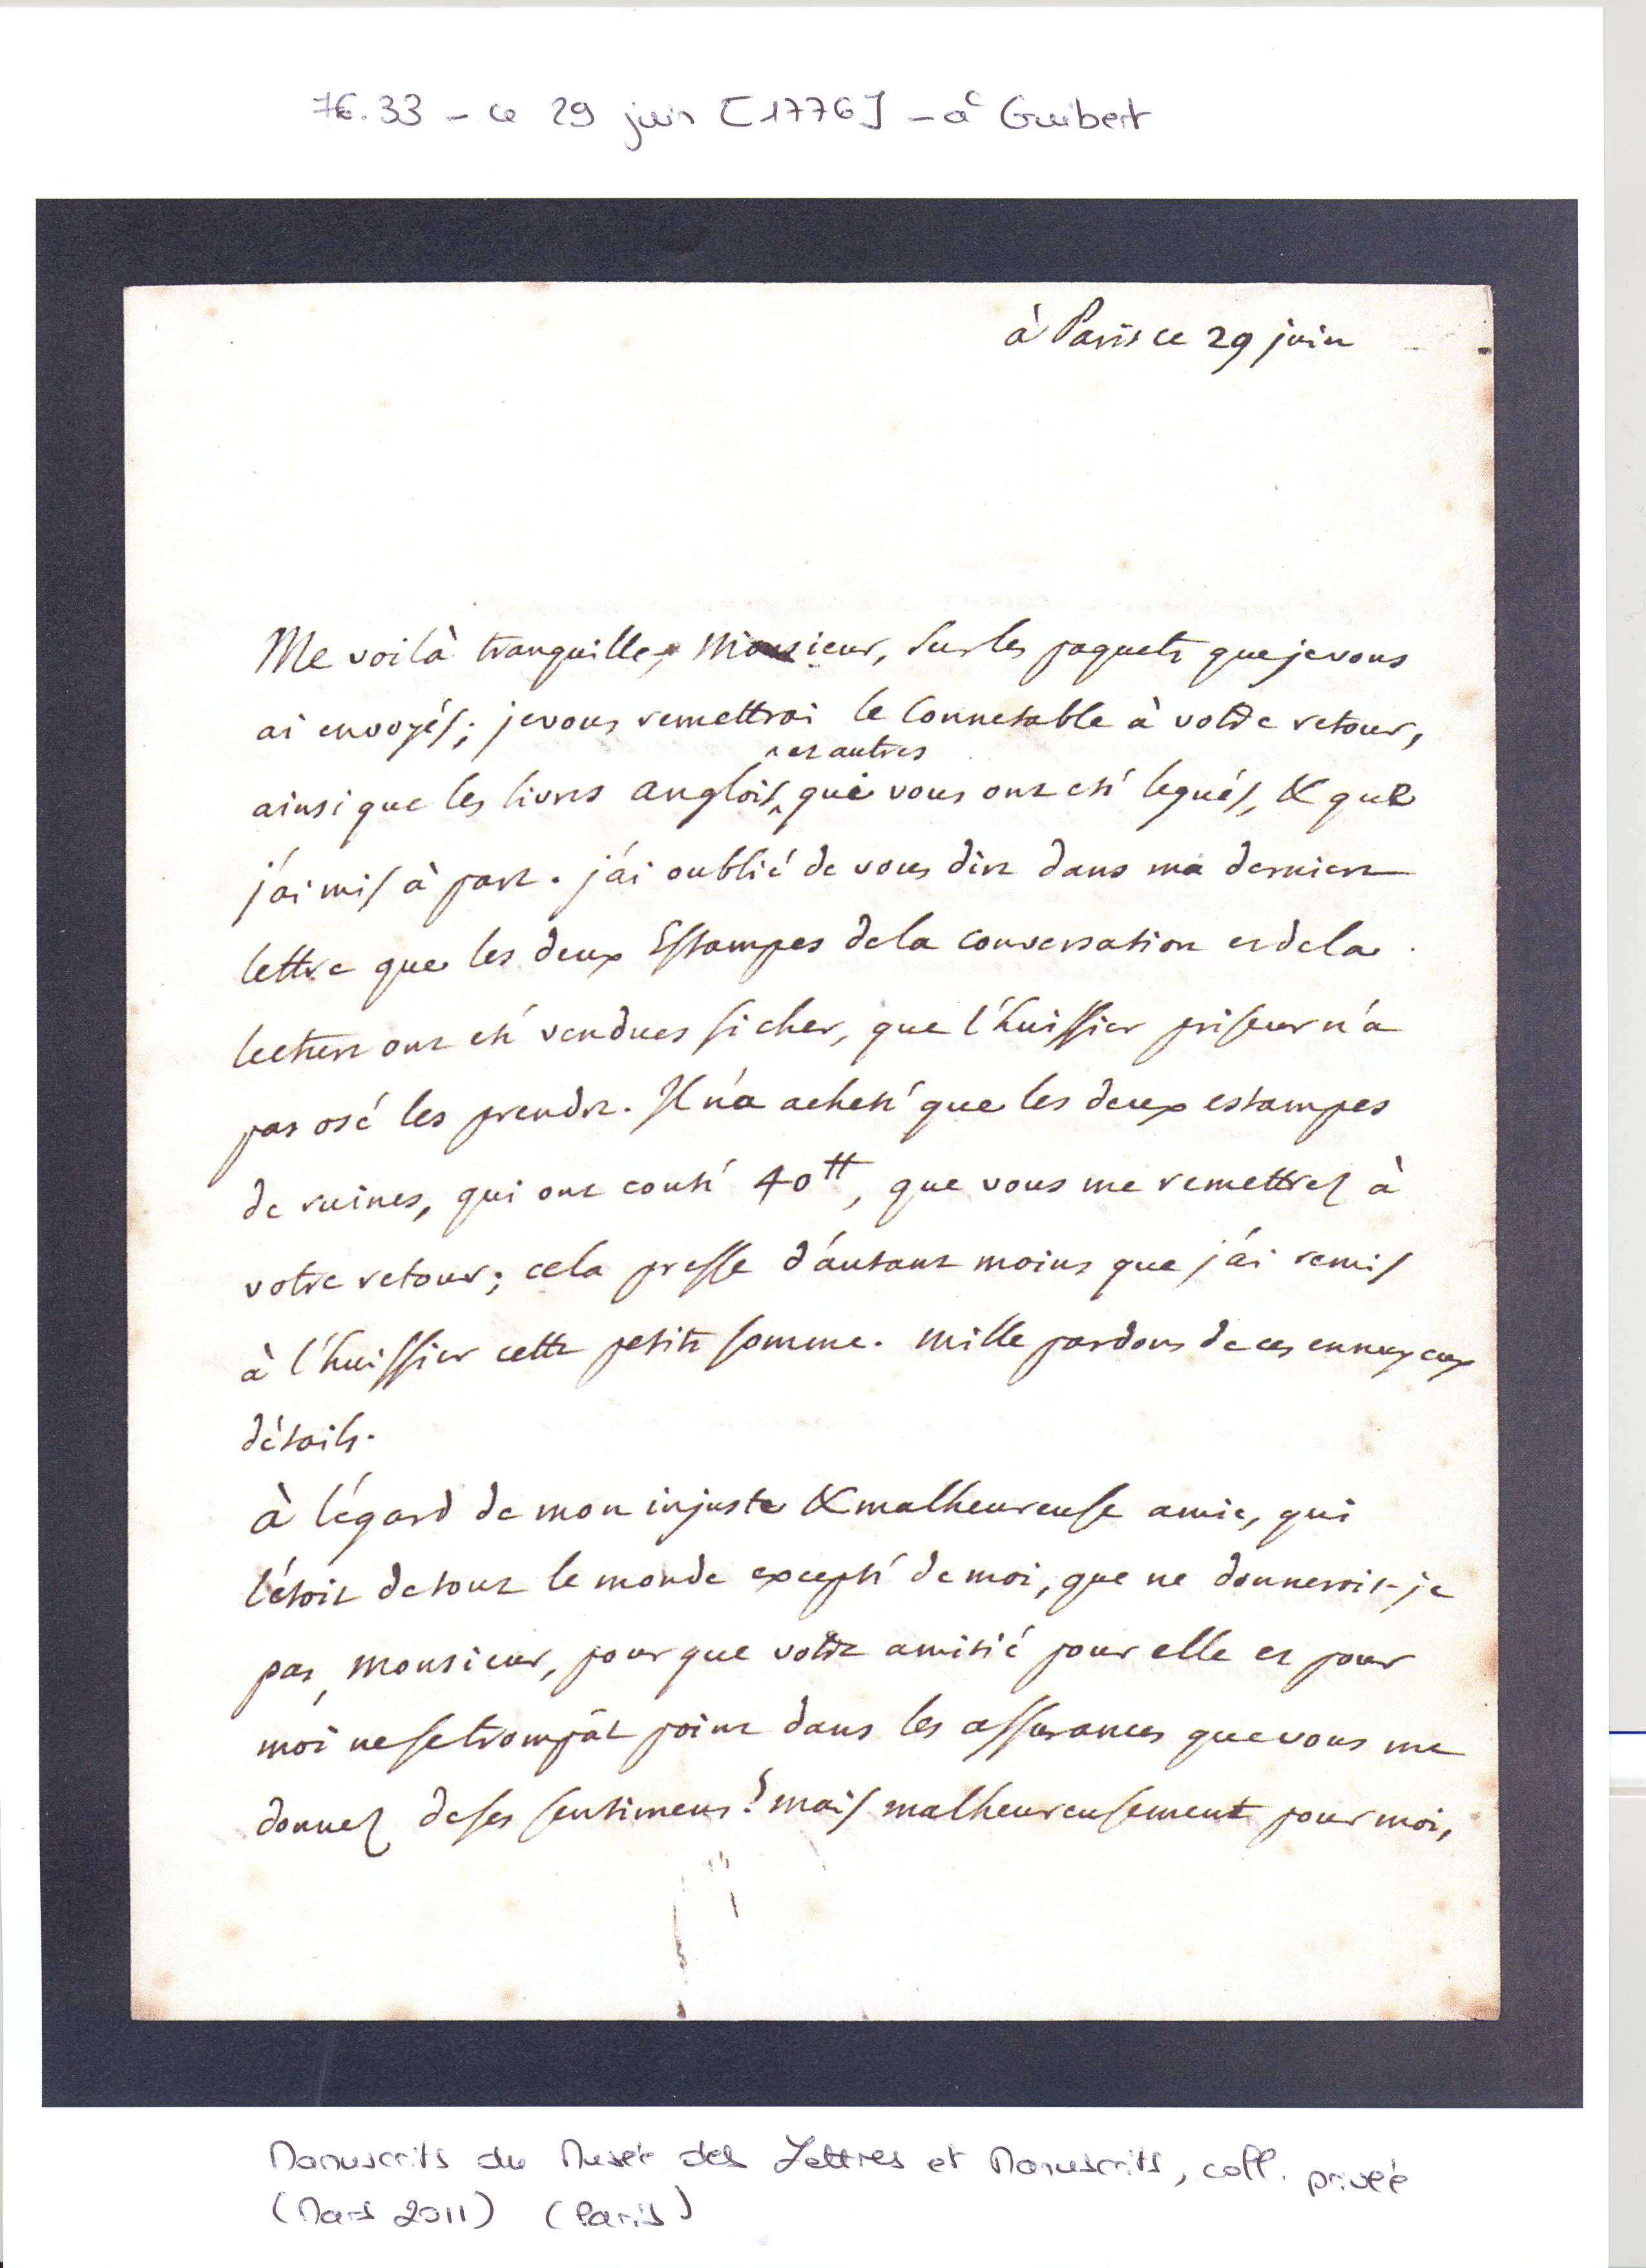 76.33 - ce 29 juin [1776] - à Guibert
à Paris ce 29 juin
Me voilà tranquille, Monsieur, sur les paquets que je vous
ai envoyés; je vous remettrai le Connetable à votre retour,
et autres
ainsi que les livres anglois, qui vous ont été legués, & que
j'ai mis à part. j'ai oublié de vous dire dans ma derniere
lettre que les deux Estampes de la conversation et de la
lecture ont été vendues si cher, que l'huissier priseur n'a
pas osé les prendre. Il n'a acheté que les deux estampes
de ruines, qui ont couté 40tt, que vous me remettrez à
votre retour; cela presse d'autant moins que j'ai remis
à l'huissier cette petite somme. mille pardons de ces ennuyeux
détails.
à l'égard de mon injuste & malheureuse amie, qui
l'étoit de tout le monde excepté de moi, que ne donnerois-je
pas, Monsieur, pour que votre amitié pour elle et pour
moi ne se trompât point dans les assurances que vous me
donnez de ses sentimens! mais malheureusement pour moi,
Manuscrits du Musée des Lettres et Manuscrits, coll. privée
(Mars 2011) (Paris)